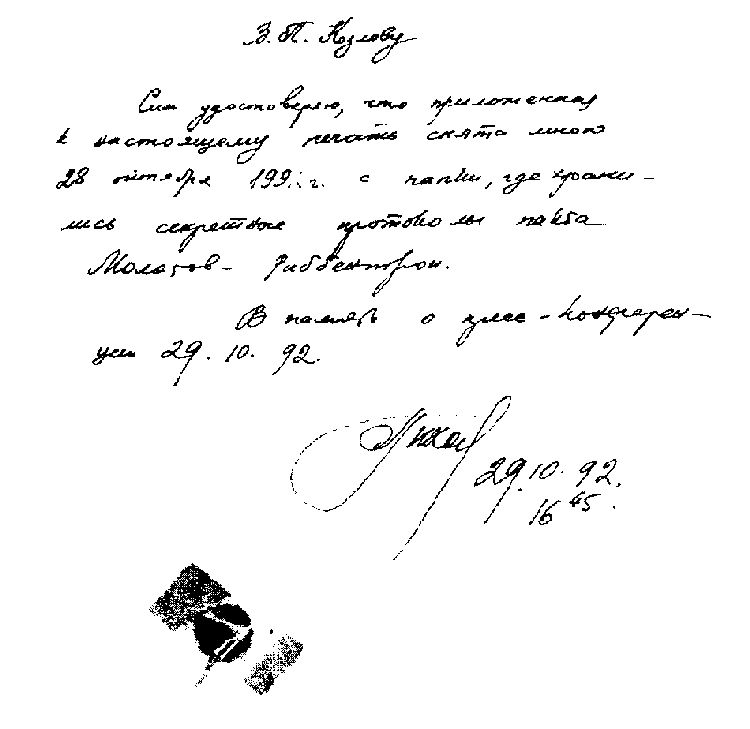 В. П. Козлову
Сим удостоверяю, что приложенная
к настоящему печать снята мною
28 октября 1992 г. с папки, где храни-
лись секретные протоколы пакта
Молотов - Риббентроп.
В память о пресс-конферен-
ции 29. 10. 92.
29.10.92.
16 45.